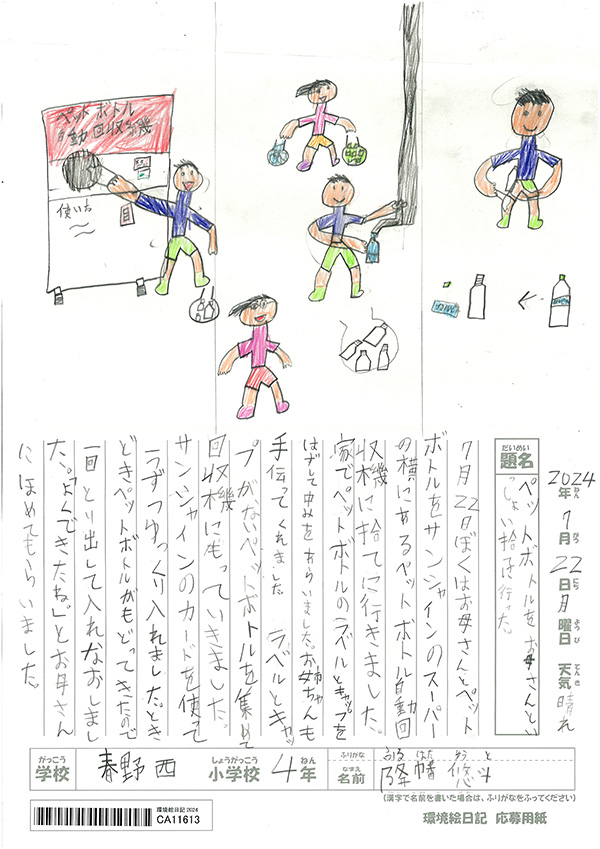 ペットボトル
自動回収機
使い方
2024年7月22日月曜日 天気晴れ
ねん
がつ
にち
ようび
てんき
だいめい
題名
ペットボトルをお母さんとい
っしょに捨に行った。
7月22日ぼくはお母さんとペット
ボトルをサンシャインのスーパー
の横にあるペットボトル自動回
収機に捨てに行きました。
家でペットボトルのラベルとキャップを
はずして中みをあらいました。お姉ちゃんも
手伝ってくれました。ラベルとキャッ
プがないペットボトルを集めて
回収機にもっていきました。
サンシャインのカードを使って
1つずつゆっくり入れました。とき
どきペットボトルがもどってきたので
一回とり出して入れなおしまし
た。「よくできたね。」とお母さん
にほめてもらいました。
がっこう
学校
春野西
しょうがっこう
小学校
4年
ねん
ふりがな
ふる はた ゆう と
なまえ
名前
降幡 悠斗
(漢字で名前を書いた場合は、ふりがなをふってください)
環境絵日記 2024
CA11613
環境絵日記 応募用紙